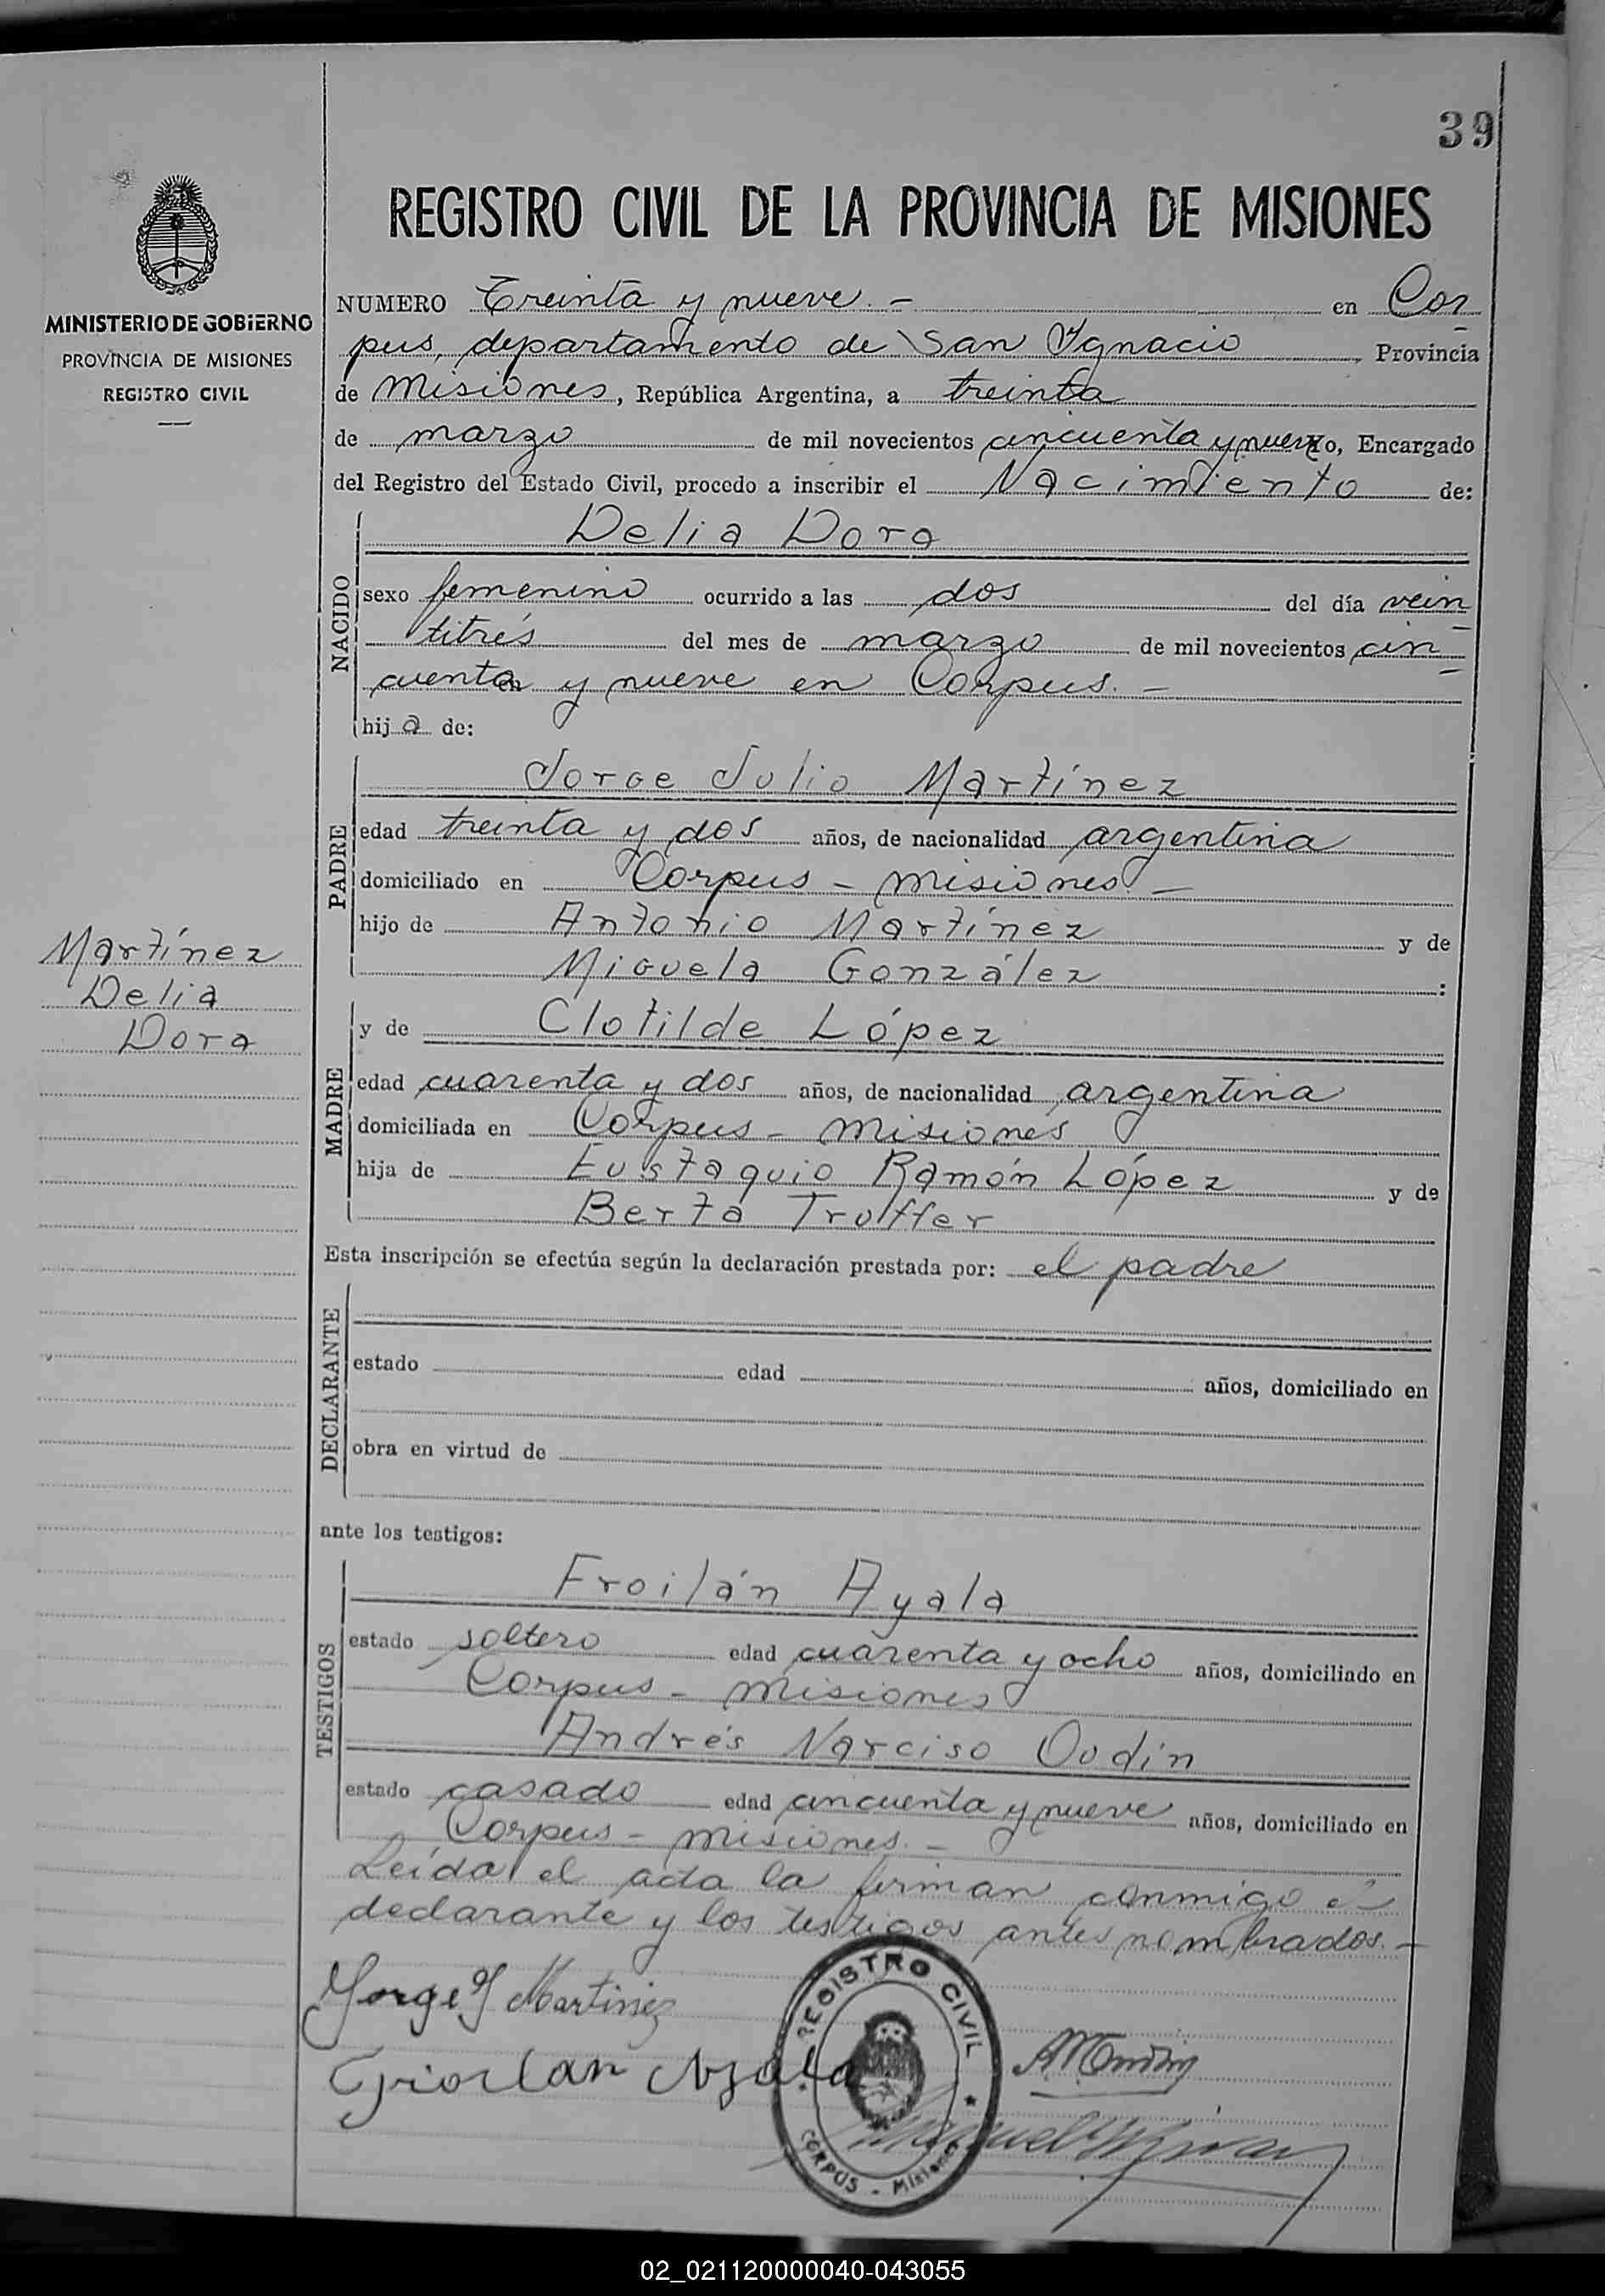 39
REGISTRO CIVIL DE LA PROVINCIA DE MISIONES
MINISTERIO DE GOBIERNO
PROVINCIA DE MISIONES
REGISTRO CIVIL
NUMERO Treinta y nueve.- en Cor-
pus, departamento de San Ignacio, Provincia
de Misiones, República Argentina, a treinta
de marzo de mil novecientos cincuenta y nueve yo, Encargado
del Registro del Estado Civil, procedo a inscribir el Nacimiento de:
NACIDO
Delia Dora
sexo femenino ocurrido a las dos del día vein-
titrés del mes de marzo de mil novecientos cin-
cuenta y nueve en Corpus.-
hij a de:
PADRE
Jorge Julio Martínez
edad treinta y dos años, de nacionalidad argentina
domiciliado en Corpus - Misiones.-
hijo de Antonio Martínez y de
Miguela González :
Martínez
Delia
Dora
MADRE
y de Clotilde López
edad cuarenta y dos años, de nacionalidad argentina
domiciliada en Corpus - Misiones
hija de Eustaquio Ramón López y de
Berta
Esta inscripción se efectúa según la declaración prestada por: el padre
DECLARANTE
estado edad años, domiciliado en
obra en virtud de
ante los testigos:
TESTIGOS
Froilán Ayala
estado soltero edad cuarenta y ocho años, domiciliado en
Corpus - Misiones
Andrés Narciso Oudin
estado casado edad cincuenta y nueve años, domiciliado en
Corpus - Misiones.-
Leída el acta la firman conmigo el
declarante y los testigos antes nombrados.-
Jorge J Martinez
Froilan Ayala
REGISTRO CIVIL
CORPUS - Misiones
02_021120000040-043055